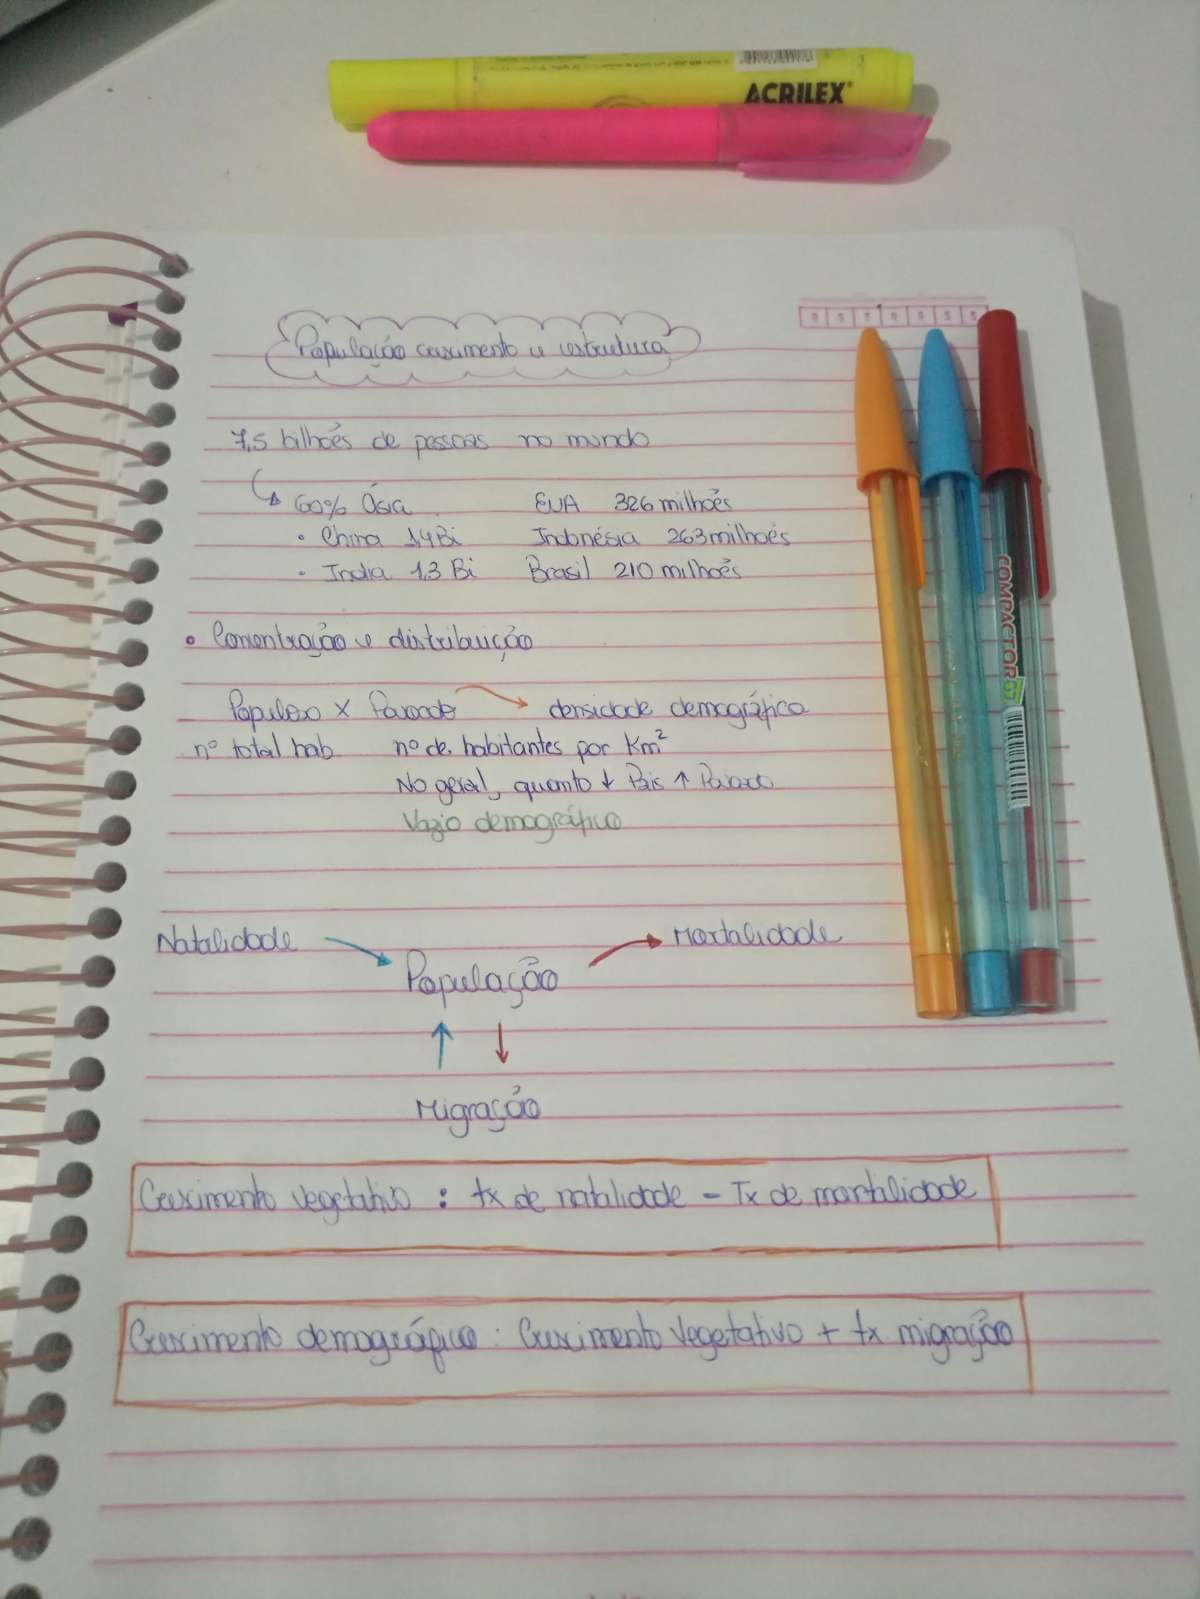 ACRILEX®
População crescimento e estrutura
7,5 bilhões de pessoas no mundo
60% Ásia EUA 326 milhões
• China 1,4 Bi Indonésia 263 milhões
• India 1,3 Bi Brasil 210 milhões
COMPACTOR 07
• Concentração e distribuição
Populoso X Povoado densidade demográfica
nº total hab. nº de habitantes por Km²
No geral, quanto ↓ País ↑ Povoado
Vazio demográfico
Natalidade Mortalidade
População
Migração
Crescimento vegetativo : tx de natalidade - Tx de mortalidade
Crescimento demográfico : Crescimento vegetativo + tx migração